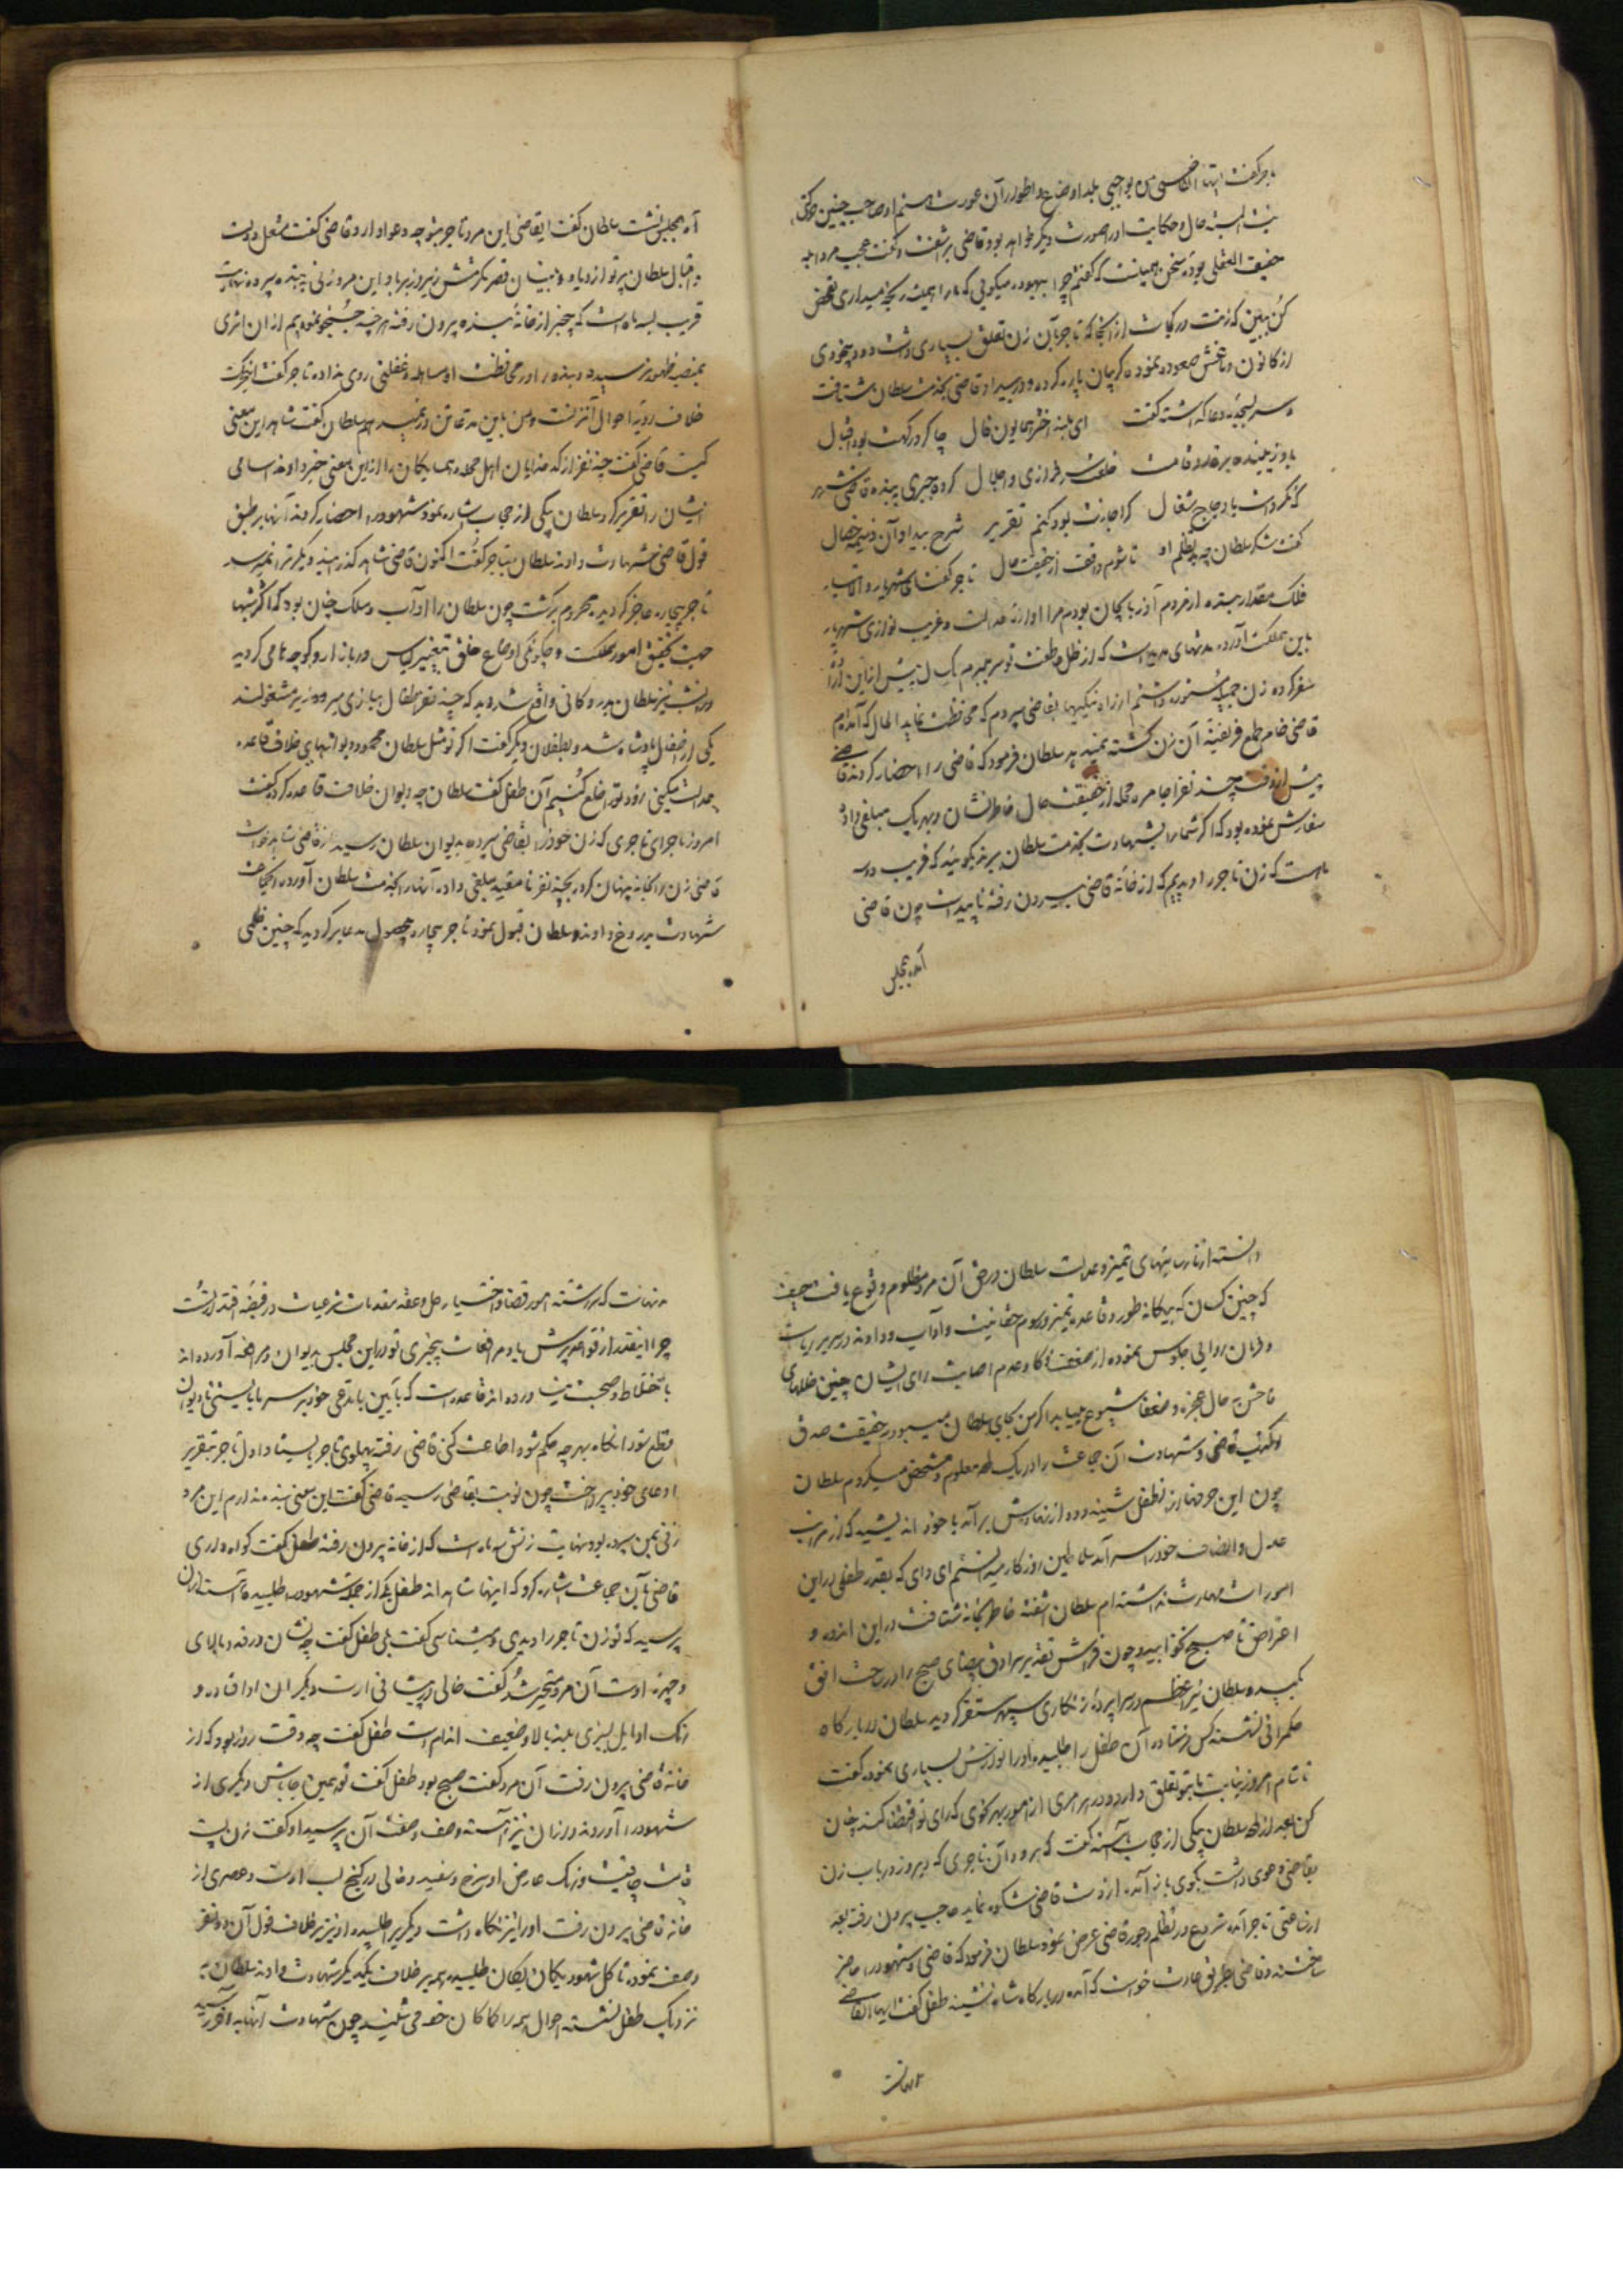 تاجر گفت ایها القاضی من بواجبی بلد اوضاع و اطوار آن عورت هستم او صاحب چنین حرکتی
نیست البته حال و حکایت او را صورت دیگر خواهد بود قاضی برآشفت و گفت عجب مردانه
خفیف العقلی بوده سخن همینست که گفتم چرا بیهوده میگوئی که ما را اهلیت ریخه میداری تفحص
کن ببین که زنت در کجاست از آنجا که تاجر بآن زن تعلق بسیاری داشت دود بیخودی
از کانون دماغش صعود نموده گریبان پاره کرده و از بیداد قاضی بخدمت سلطان شتافت
و سر بسجده دعا گذاشته گفت ای بلند اختر همایون فال چاکر درگهت بود اقبال
باد زیبنده بر قد و قامتت خلعت سرفرازی و اجلال کرده جبری ببنده قاضی شهر
که نکردست باد جاج شغال گر اجازت بود کنم تقریر شرح بیداد آن ذمیمه خصال
گفتش سلطان چه بد تظلم او تا شوم واقف از حقیقت حال تاجر گفت ای شهریار والاتبار
فلک مقدار بنده از مردم آذربایجان بودم مرا آوازه عدالت و غریب نوازی شهریار
باین مملکت آورد مدتهای مدید است که در ظل عاطفت تو بسر میبرم یک سال پیش ازین اراده
سفر کرده زن جمیله مستوره داشتم از راه نیکیها بقاضی سپردم که محافظت نماید الحال که آمده‌ام
قاضی خام طمع فریفته آن زن گشته نمیدهد سلطان فرمود که قاضی را احضار کردند قاضی
پیش از وقت چند نفر اجامره محله از حقیقت حال خاطرنشان و بهر یک مبلغی داده
سفارش نموده بود که اگر شما را بشهادت بخدمت سلطان برند بگوئید که قریب دو سه
ماهست که زن تاجر را دیدیم که از خانه قاضی بیرون رفته ناپیداست چون قاضی
آمده بمجلس
آمد بمجلس نشست سلطان گفت ایقاضی این مرد تاجر بتو چه دعوا دارد قاضی گفت مشعل دولت
و اقبال سلطان پرتو ازدیاد و بنیان قصر مکرمتش زیر و زبر باد این مرد زنی به بنده سپرده نهایت
قریب بسه ماه است که بیخبر از خانه بنده بیرون رفته هر چند جستجو نمودیم از آن اثری
بمنصه ظهور نرسیده و بنده را در محافظت او مساهله و غفلتی روی نداده تاجر گفت اینحرکت
خلاف رویه احوال آنزنست و من باین مدعا تن در نمیدهم سلطان گفت شاهد این معنی
کیست قاضی گفت چند نفر از کدخدایان اهل محله و همسایگان را از این معنی خبر دادند اسامی
ایشان را تقریر کرد سلطان بیکی از حجاب اشاره نمود شهود را احضار کردند آنها بر طبق
قول قاضی شهادت دادند سلطان بتاجر گفت اکنون قاضی شاهد گذرانید دیگر ترا نمیرسد
تاجر بیچاره عاجز گردیده محروم برگشت چون سلطان را آداب و سلوک چنان بود که اکثر شبها
جهت تحقیق امور مملکت و چگونگی اوضاع خلق بتغییر لباس در بازار و کوچه‌ها میگردید
در آنشب نیز سلطان بدر دکانی واقع شد دید که چند نفر اطفال ببازی میر و وزیر مشغولند
یکی از طفلان پادشاه شد و بطفلان دیگر گفت اگر تو مثل سلطان محمود دیوانهای خلاف قاعده
عدالت میکنی زود ترا خلع کنیم آن طفل گفت سلطان چه دیوان خلاف قاعده کرده گفت
امروز ماجرای تاجری که زن خود را بقاضی سپرده بدیوان سلطان رسید از قاضی شاهد خواست
قاضی زن را بخانه پنهان کرده بچند نفر نامقید مبلغی داده آنها را بخدمت سلطان آورد از جهت
شهادت بدروغ دادند و سلطان قبول نمود تاجر بیچاره بحصول مدعا برگردید که چنین ظلمی
دانسته از نارسائیهای تمیز و عدالت سلطان در حق آن مرد مظلوم وقوع یافت حیف
که چنین کسان که بیگانه طور و قاعده تمیز و رسوم حقانیت و آداب و دادند در سریر ریاست
و فرمان روایی جلوس نموده از ضعف ذکا و عدم اصابت رای ایشان چنین ظلمهای
فاحش بر حال عجزه و ضعفا شیوع مییابد اگر من بجای سلطان میبودم حقیقت صدق
و کذب قاضی و شهادت آن جماعت را در یک لحظه معلوم و مشخص میکردم سلطان
چون این حرفها را از طفل شنید دود از نهادش برآمد با خود اندیشید که از مراتب
عدل و انصاف خود را سرآمد سلاطین روزگار میدانستم ای وای که بقدر طفلی در این
امورات مهارت نداشته‌ام سلطان آشفته خاطر بخانه شتافت در این اندوه و
اعتراض تا صبح نخوابید و چون فراش تقدیر سرادق بیضای صبح را در ساحت افق
کشیده سلطان نیر اعظم در سراپرده زنگاری سپهر مستقر گردید سلطان در بارگاه
حکمرانی نشسته کس فرستاده آن طفل را طلبیده و او را نوازش بسیاری نموده گفت
تا شام امروز نیابت ما بتو تعلق دارد و در هر امری از امور بهر نحوی که رای تو اقتضا کند چنان
کن بعد از آن سلطان بیکی از حجاب آهسته گفت که برو و آن تاجری که دیروز در باب زن
بقاضی دعوی داشت بگوی باز آمده از دست قاضی شکوه نماید حاجب بیرون رفته بعد
از ساعتی تاجر آمده شروع در تظلم و جور قاضی عرض نمود سلطان فرمود که قاضی و شهود را حاضر
ساختند و قاضی بطریق عادت خواست که آمده در بارگاه شاه نشیند طفل گفت ایها القاضی
تو نهانت
که سررشته امور قضا و اختیار حل و عقد مقدمات شرعیات در قبضه اقتدار تست
چرا اینقدر از قواعد پرسش و مرافعات بیخبری تو در این مجلس بدیوان و مرافعه آورده‌اند
باختلاط و صحبت نیاورده‌اند قاعده است که بآیین با مدعی خود بر سر پا بایستی تا دیوان
قطع شود آنگاه بهر چه حکم شود اطاعت کنی قاضی رفته پهلوی تاجر بایستاد اول تاجر بتقریر
ادعای خود پرداخت چون نوبت بقاضی رسید قاضی گفت این معنی بنده ندارم این مرد
زنی بمن سپرده بود نهایت زنش سه ماه است که از خانه بیرون رفته طفل گفت گواه داری
قاضی بآن جماعت اشاره کرد که اینها شاهدند طفل یکی از جمله شهود را طلبیده آهسته از آن
پرسید که تو زن تاجر را دیدی و میشناسی گفت بلی طفل گفت چه نشان در قد و بالای
و چهره اوست آن مرد متحیر شد گفت خالی در پیشانی دارد و دیگر آن او افتاده و
رنگ او مایل بسبزی بلند بالا و ضعیف اندام است طفل گفت چه وقت روز بود که از
خانه قاضی بیرون رفت آن مرد گفت صبح بود طفل گفت تو همین جا باش دیگری از
شهود را آوردند و از آن نیز آهسته وصف و صفت آن پرسید او گفت زن پست
قامت چاقیست و رنگ عارض او سرخ و سفید و خالی در کنج لب اوست و عصری از
خانه قاضی بیرون رفت او را نیز نگاه داشت دیگری را طلبیده او نیز بر خلاف قول آن دو نفر
وصف نموده تا کل شهود یکان یکان طلبیده همه بر خلاف یکدیگر شهادت دادند سلطان نیز
نزدیک طفل نشسته احوال همه را کماکان خود میشنید چون شهادت آنها بآخر رسید